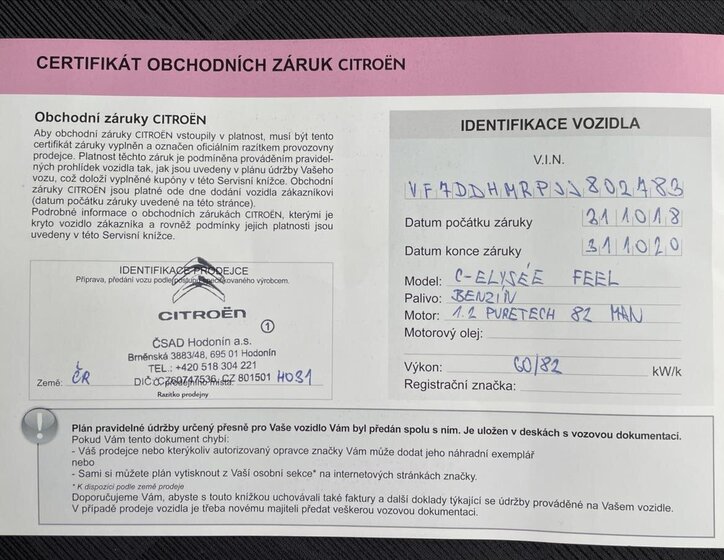 CERTIFIKÁT OBCHODNÍCH ZÁRUK CITROËN
Obchodní záruky CITROËN
Aby obchodní záruky CITROËN vstoupily v platnost, musí být tento
certifikát záruky vyplněn a označen oficiálním razítkem provozovny
prodejce. Platnost těchto záruk je podmíněna prováděním pravidel-
ných prohlídek vozidla tak, jak jsou uvedeny v plánu údržby Vašeho
vozu, což doloží vyplněné kupóny v této Servisní knížce. Obchodní
záruky CITROËN jsou platné ode dne dodání vozidla zákazníkovi
(datum počátku záruky uvedené na této stránce).
Podrobné informace o obchodních zárukách CITROËN, kterými je
kryto vozidlo zákazníka a rovněž podmínky jejich platnosti jsou
uvedeny v této Servisní knížce.
IDENTIFIKACE PRODEJCE
Příprava, předání vozu podle postupu specifikovaného výrobcem.
CITROËN
1
ČSAD Hodonín a.s.
Brněnská 3883/48, 695 01 Hodonín
TEL.: +420 518 304 221
Země: ČR DIČ: CZ60747536, CZ 801501 H081
Razítko prodejny
IDENTIFIKACE VOZIDLA
V.I.N.
VF7DDHMRPJJ802483
Datum počátku záruky 311018
Datum konce záruky 311020
Model: C-ELYSÉE FEEL
Palivo: BENZÍN
Motor: 1.2 PURETECH 82 MAN
Motorový olej:
Výkon: 60/82 kW/k
Registrační značka:
Plán pravidelné údržby určený přesně pro Vaše vozidlo Vám byl předán spolu s ním. Je uložen v deskách s vozovou dokumentací.
Pokud Vám tento dokument chybí:
- Váš prodejce nebo kterýkoliv autorizovaný opravce značky Vám může dodat jeho náhradní exemplář
nebo
- Sami si můžete plán vytisknout z Vaší osobní sekce* na internetových stránkách značky.
* K dispozici podle země prodeje
Doporučujeme Vám, abyste s touto knížkou uchovávali také faktury a další doklady týkající se údržby prováděné na Vašem vozidle.
V případě prodeje vozidla je třeba novému majiteli předat veškerou vozovou dokumentaci.